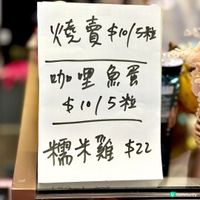 燒賣 $10/5粒
咖哩魚蛋
$10/5粒
糯米雞 $22